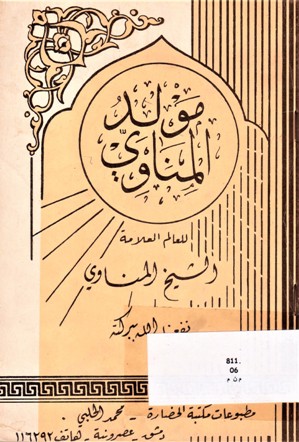 مولد
المناوي
للعالم العلامة
الشيخ المناوي
نفعنا الله ببركته
811.
06
م ن م
مطبوعات مكتبة الحضارة - محمد الحلبي .
دمشق - عصرونية - هاتف ١١٦٢٩٢